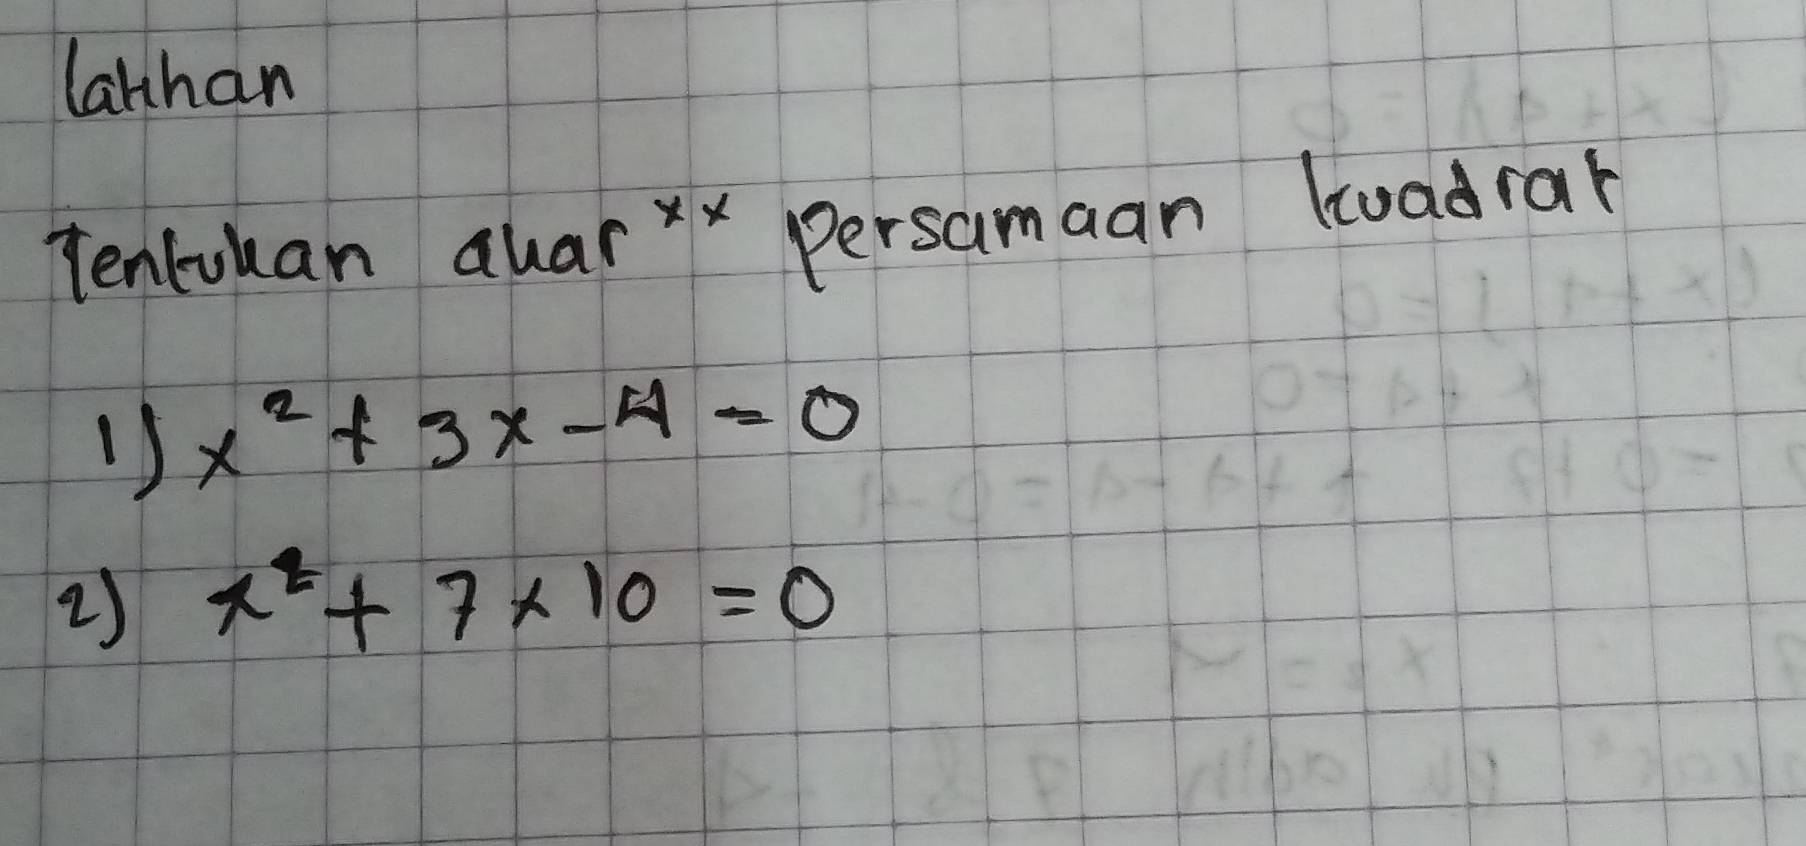 latihan
Tentukan akar ˣˣ persamaan kuadrat
1) x² + 3x - 4 = 0
2) x² + 7x 10 = 0